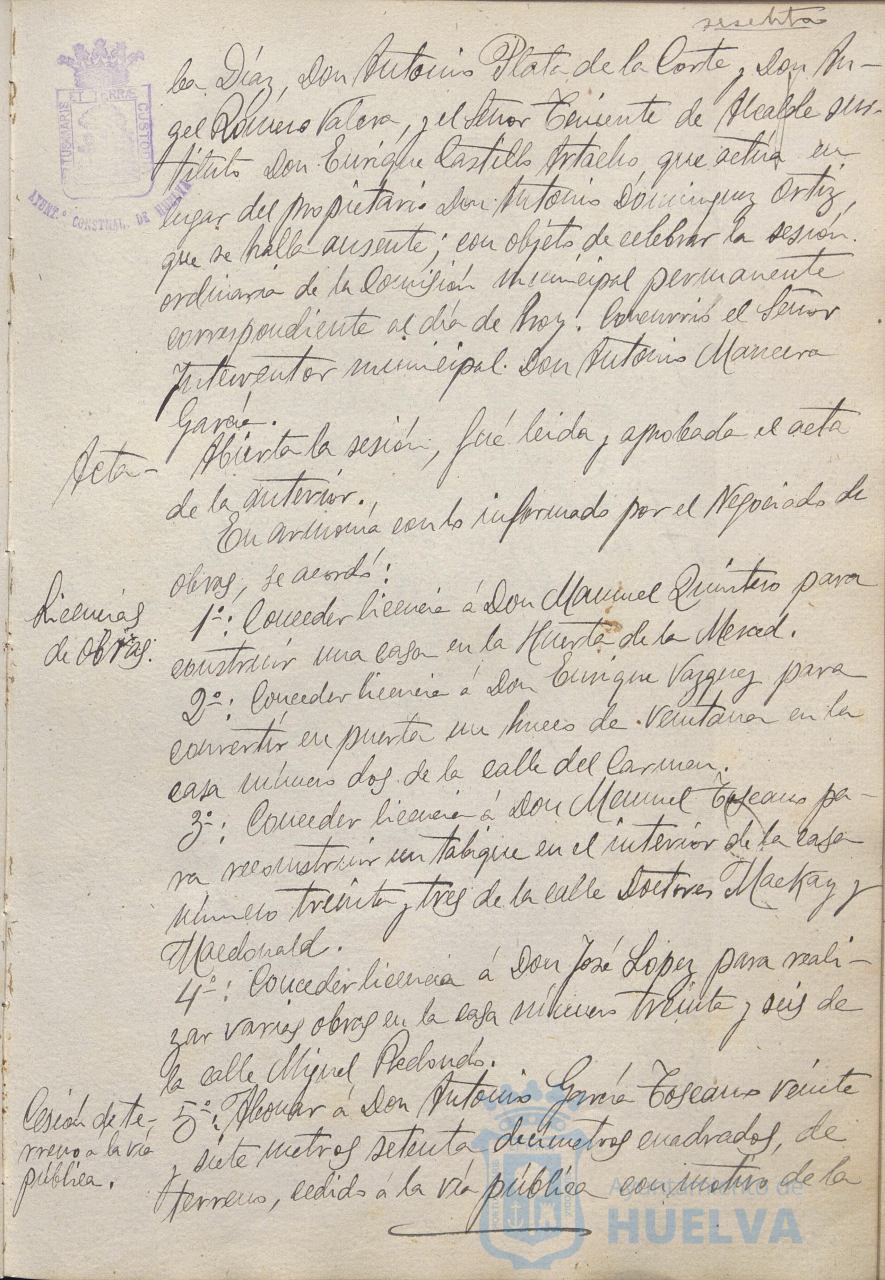 sesenta
ba Díaz, Don Antonio Plata de la Corte y Don An-
gel Romero Valera, y el Señor Teniente de Alcalde sus-
tituto Don Enrique Castillo Artacho, que actúa en
lugar del propietario Don Antonio Domínguez Ortiz,
que se halla ausente; con objeto de celebrar la sesión
ordinaria de la Comisión municipal permanente
correspondiente al día de hoy. Concurrió el Señor
Interventor municipal Don Antonio Manceira
García.
Acta- Abierta la sesión, fué leida y aprobada el acta
de la anterior.
En armonía con lo informado por el Negociado de
obras, se acordó:
Licencias
de obras.
1º: Conceder licencia á Don Manuel Quintero para
construir una casa en la Huerta de la Merced.
2º: Conceder licencia á Don Enrique Vazquez para
convertir en puerta un hueco de ventana en la
casa número dos de la calle del Carmen.
3º: Conceder licencia á Don Manuel Toscano pa-
ra reconstruir un tabique en el interior de la casa
número treinta y tres de la calle Doctores Mackay y
Macdonald.
4º: Conceder licencia á Don José López para reali-
zar varias obras en la casa número treinta y seis de
la calle Miguel Redondo.
Cesión de te-
rreno a la vía
pública.
5º: Abonar á Don Antonio García Toscano veinte
y siete metros setenta decímetros cuadrados, de
terreno, cedido á la vía pública con motivo de la
AYUNT.º CONSTNAL. DE HUELVA
Ayuntamiento de
HUELVA